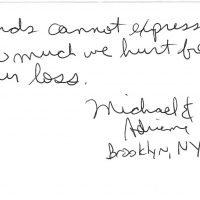 rds cannot express
much we hurt fo
ur loss.
Michael &
Adriene
Brooklyn, NY